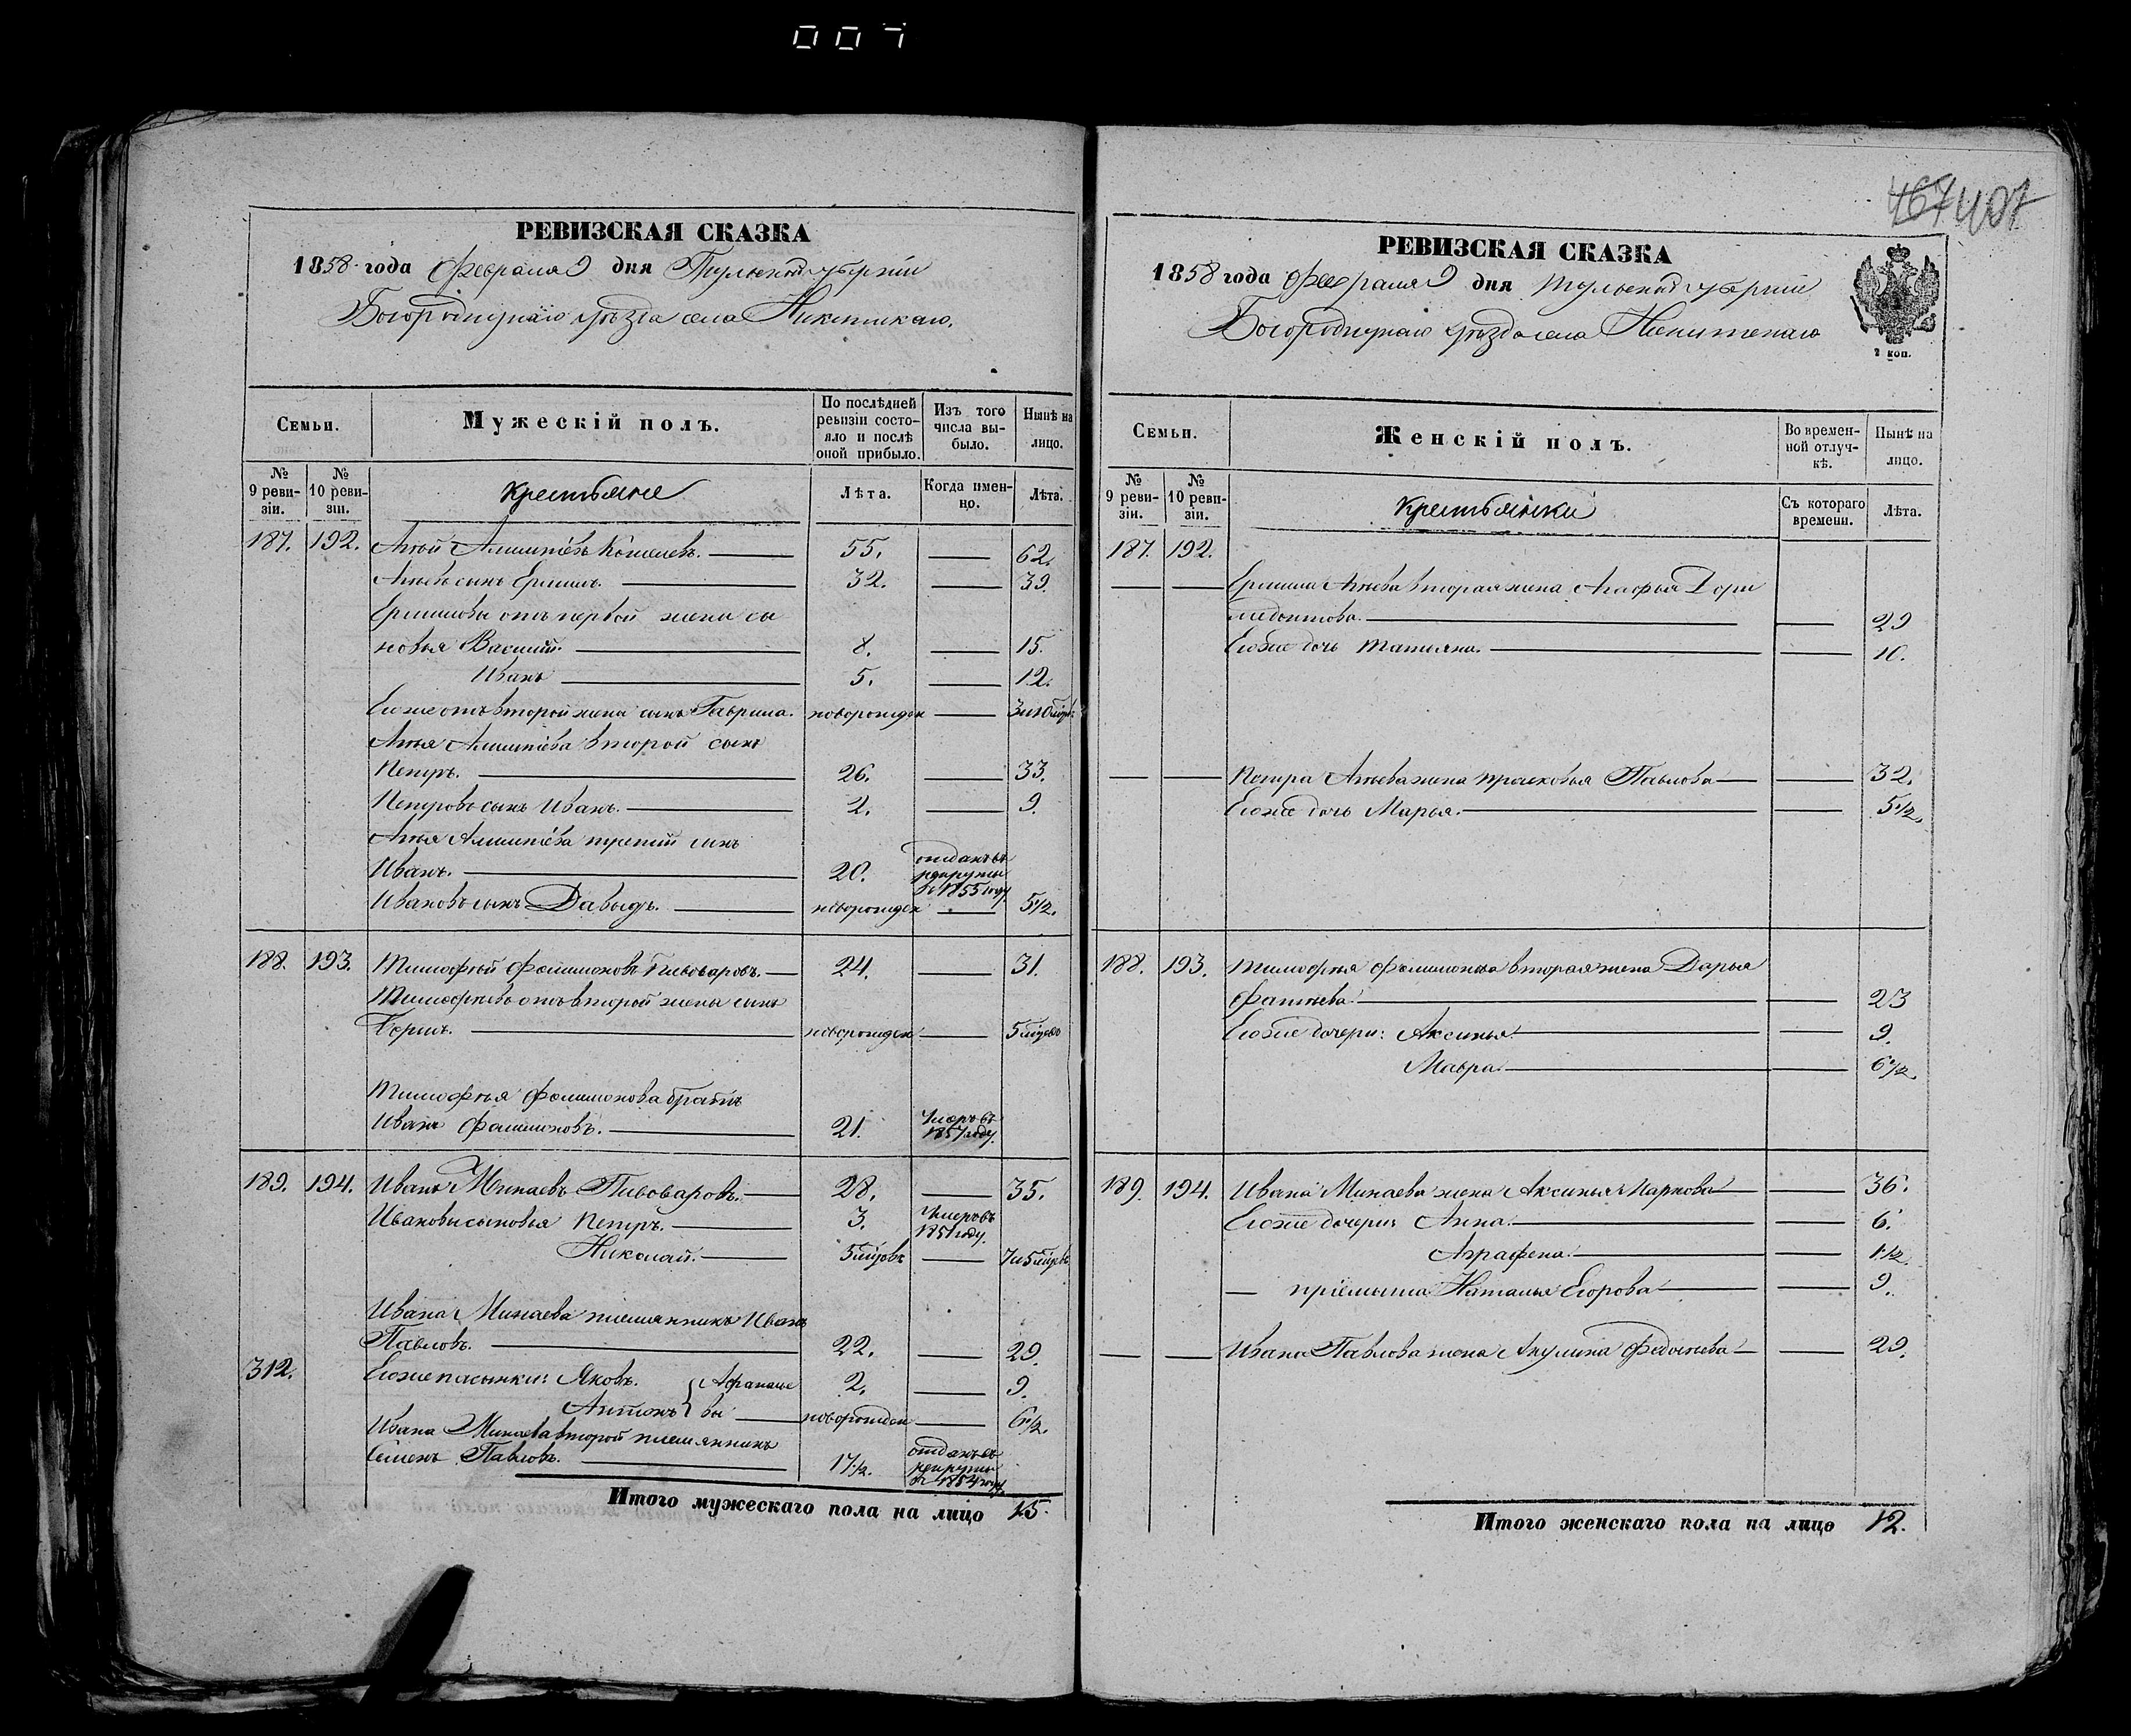 007
РЕВИЗСКАЯ СКАЗКА
1858 года Февраля 9 дня Тульской губерніи
Богородицкаго уѣзда села Никитскаго.
Семьи.
Мужескій полъ.
По послѣдней ревизіи состояло и послѣ оной прибыло.
Изъ того числа выбыло.
Нынѣ на лицо.
№ 9 ревизіи.
№ 10 ревизіи.
Крестьяне
Лѣта.
Когда именно.
Лѣта.
187. 192. 55. 62.
сынъ 32. 39.
отъ первой жены сы
новья Василій. 8. 15.
Иванъ 5. 12.
Его же отъ второй жены сынъ Гаврила. новорожден
второй сынъ
Петръ. 26. 33.
Петровъ сынъ Иванъ. 2. 9.
третій сынъ
Иванъ. 20. отданъ въ рекруты въ 1855 году
Ивановъ сынъ Давыдъ. новорожден 5 1/2.
188. 193. Тимофей Филимоновъ Пивоваровъ. 24. 31.
Тимофеевъ отъ второй жены сынъ
новорожден 5 мѣсяцовъ
Тимофея Филимонова братъ
Иванъ Филимоновъ. 21. Умеръ въ 1857 году.
189. 194. Иванъ Минаевъ Пивоваровъ. 28. 35.
Ивановы сыновья Петръ. 3. Умеръ въ 1851 году.
Николай. 5 мѣсяцовъ 7 и 5 мѣсяцовъ
Ивана Минаева племянникъ Иванъ
Павловъ. 22. 29.
312. Его же пасынки: Яковъ. } Афанасье 2. 9.
Антонъ } вы новорожден 6 1/2.
Ивана Минаева второй племянникъ
Семенъ Павловъ. 17 1/2. отданъ въ рекруты въ 1854 году.
Итого мужескаго пола на лицо 15.
467 407
РЕВИЗСКАЯ СКАЗКА
1858 года Февраля 9 дня Тульской губерніи
Богородицкаго уѣзда села Никитскаго
2 коп.
Семьи.
Женскій полъ.
Во временной отлучкѣ.
Нынѣ на лицо.
№ 9 ревизіи.
№ 10 ревизіи.
Крестьянки
Съ котораго времени.
Лѣта.
187. 192.
вторая жена Агафья
29
Его же дочь Татьяна. 10.
Петра жена Прасковья Павлова 32.
Его же дочь Марья. 5 1/2.
188. 193. Тимофея Филимонова вторая жена Дарья
23
Его же дочери: Аксинья 9.
Мавра. 6 1/2.
189. 194. Ивана Минаева жена Аксинья Карпова 36.
Его же дочери: Анна. 6.
Аграфена. 1 1/2
пріемыша Наталья Егорова 9.
Ивана Павлова жена Акулина 29.
Итого женскаго пола на лицо 12.